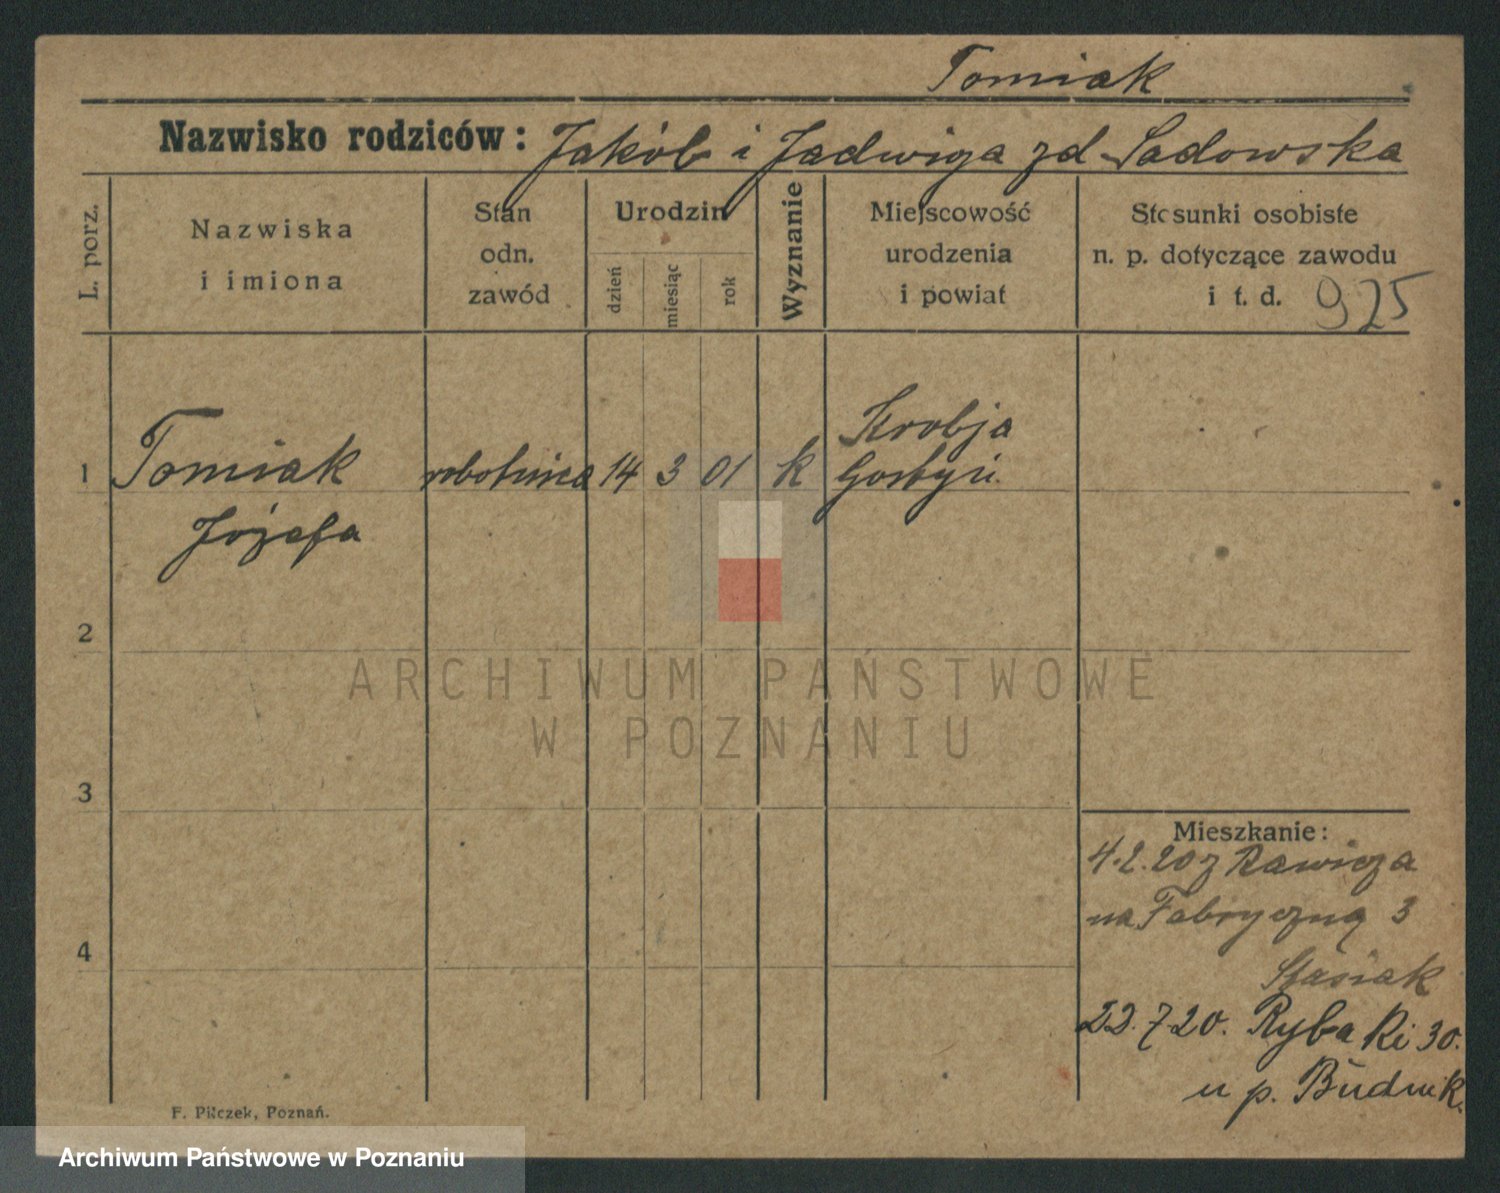 Tomiak
Nazwisko rodziców: Jakób i Jadwiga zd Sadowska
L. porz.
Nazwiska
i imiona
Stan
odn.
zawód
Urodzin
dzień
miesiąc
rok
Wyznanie
Miejscowość
urodzenia
i powiat
Stosunki osobiste
n. p. dotyczące zawodu
i t. d. 925
1 Tomiak robotnica 14 3 01 k Krobja
Józefa Gostyń.
2
3
4
Mieszkanie:
4.2.20 z Rawicza
na Fabryczną 3
Stasiak
22.7.20. Rybaki 30.
u p. Budnik.
F. Pilczek, Poznań.
ARCHIWUM PAŃSTWOWE
W POZNANIU
Archiwum Państwowe w Poznaniu